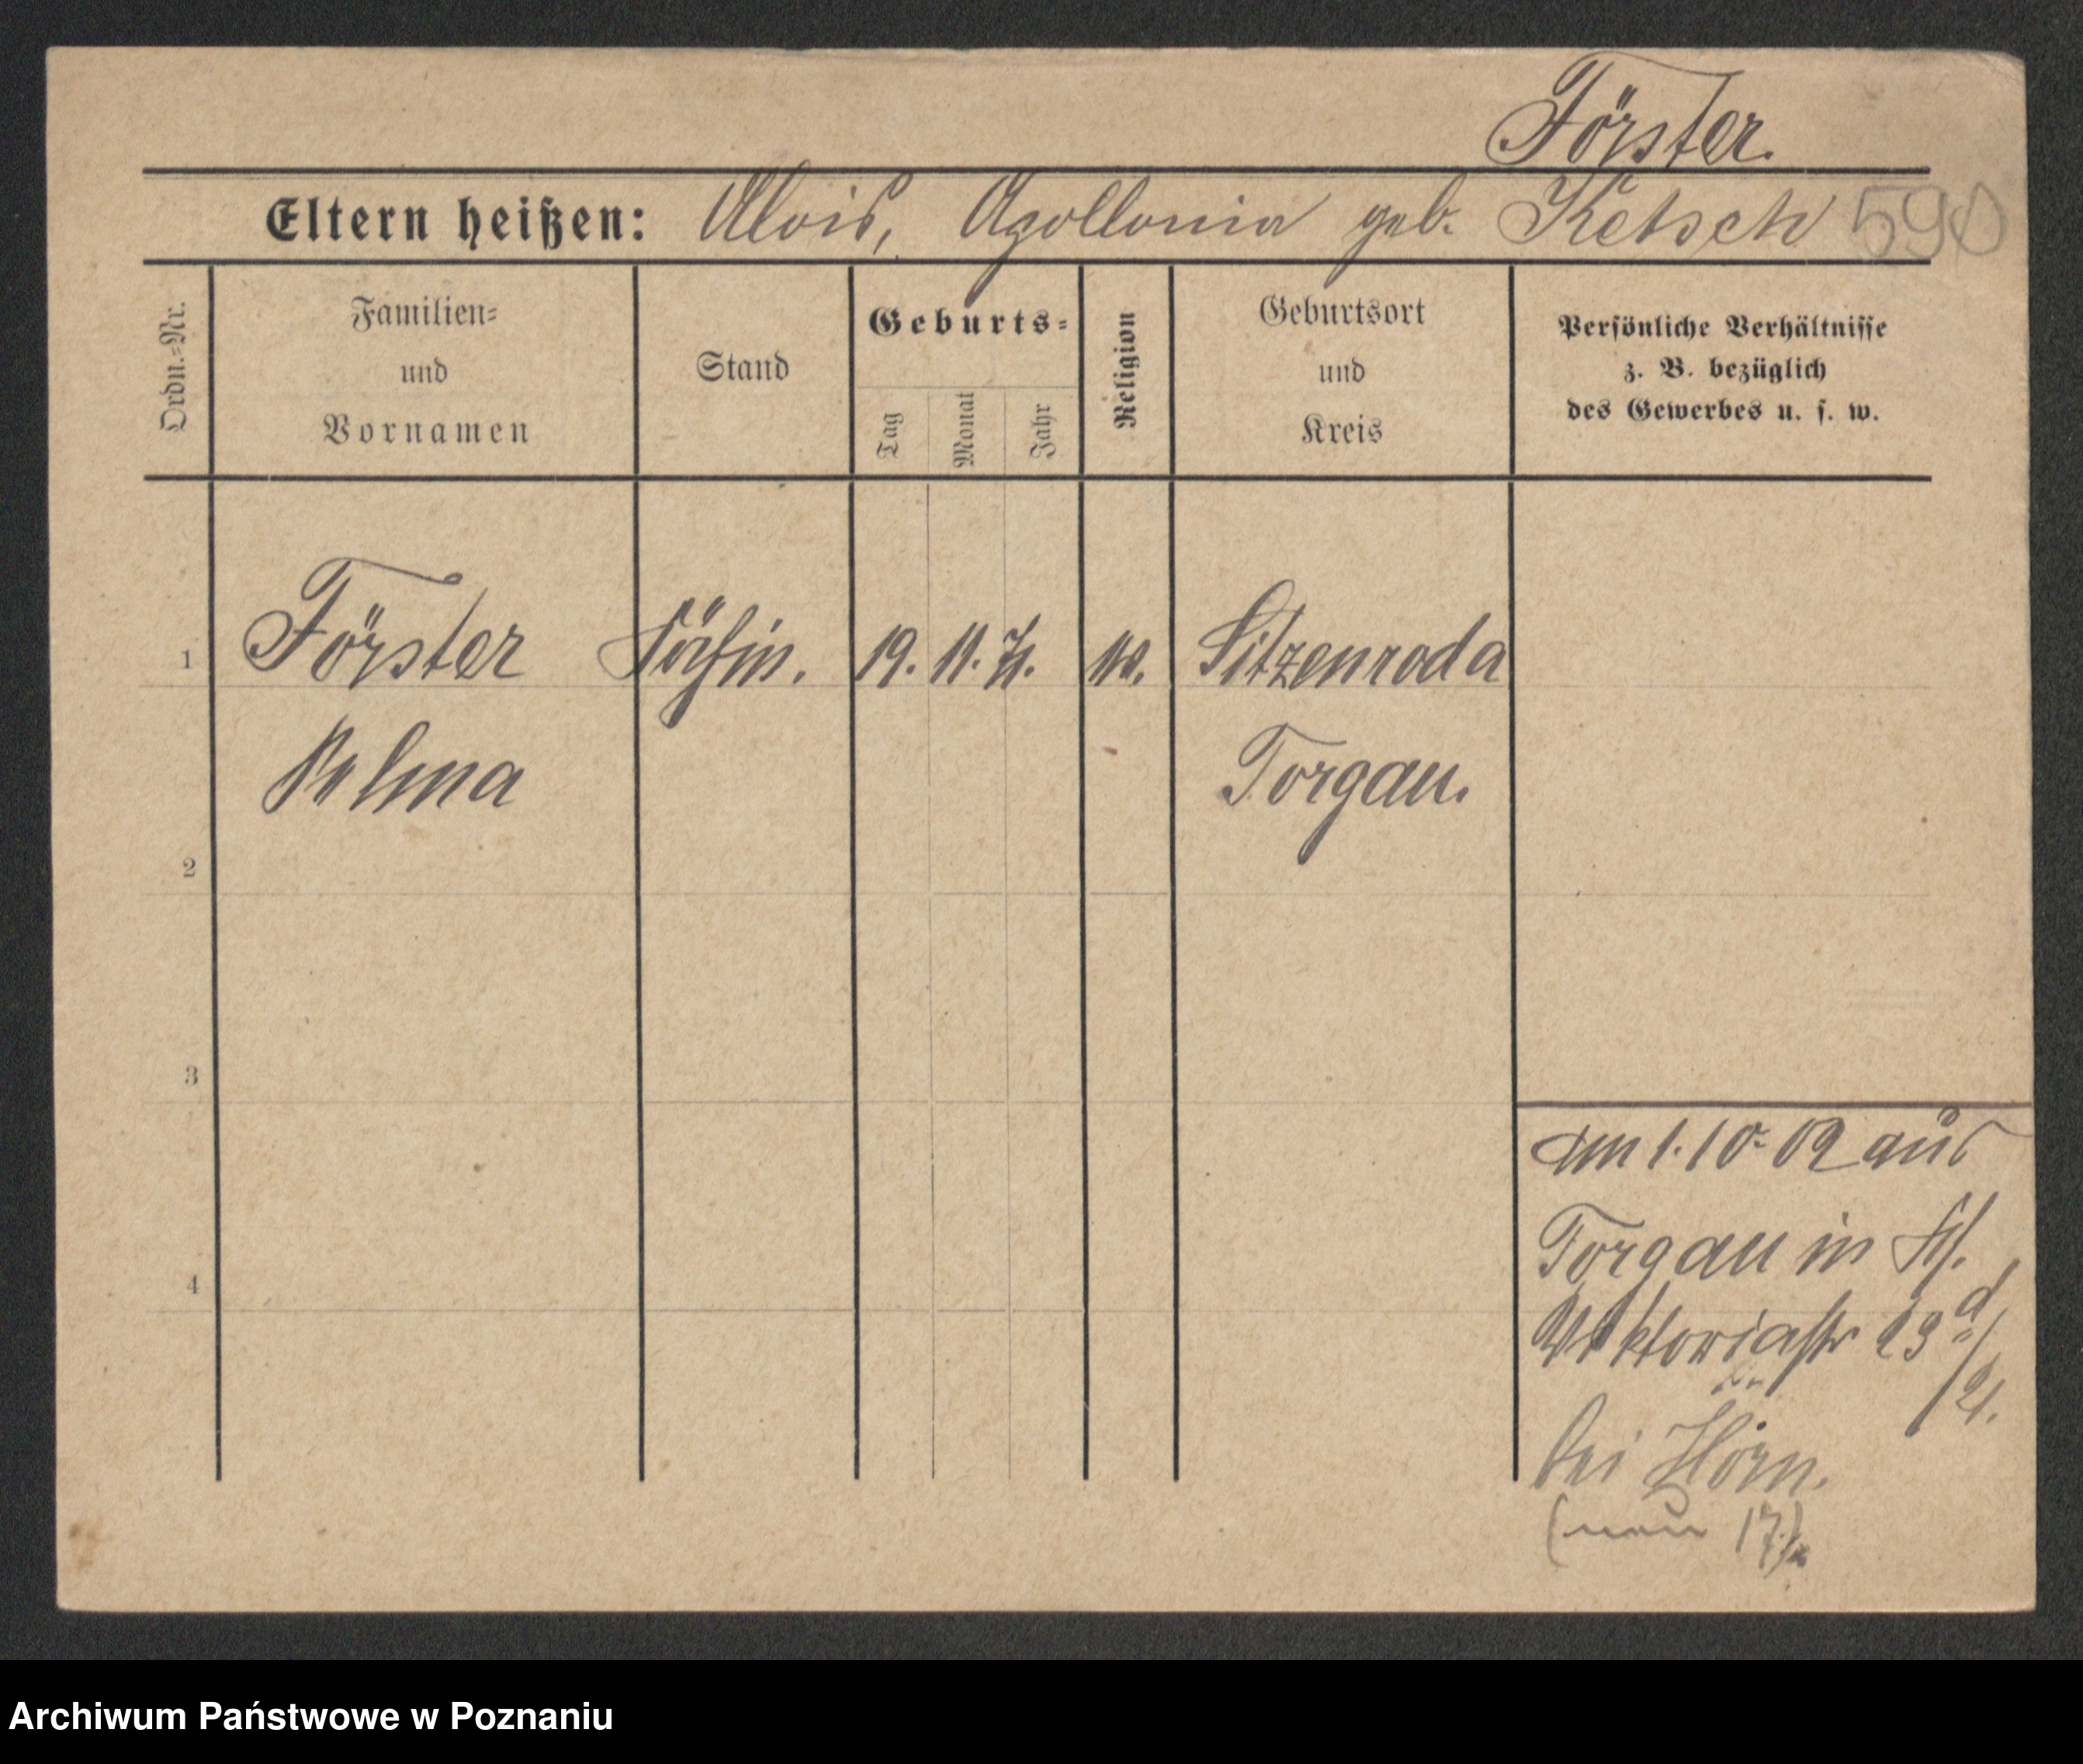 Förster.
Eltern heißen: Alois, Apollonia geb. Ketsch 590
Ordn.-Nr.
Familien-
und
Vornamen
Stand
Geburts-
Tag
Monat
Jahr
Religion
Geburtsort
und
Kreis
Persönliche Verhältnisse
z. B. bezüglich
des Gewerbes u. s. w.
1 Förster Köchin. 19. 11. 71. Sitzenroda
Selma Torgau.
2
3
4
am 1. 10. 02 aus
Torgau in
Viktoriastr 23 d
/21.
bei Hörn.
(neu 17)
Archiwum Państwowe w Poznaniu